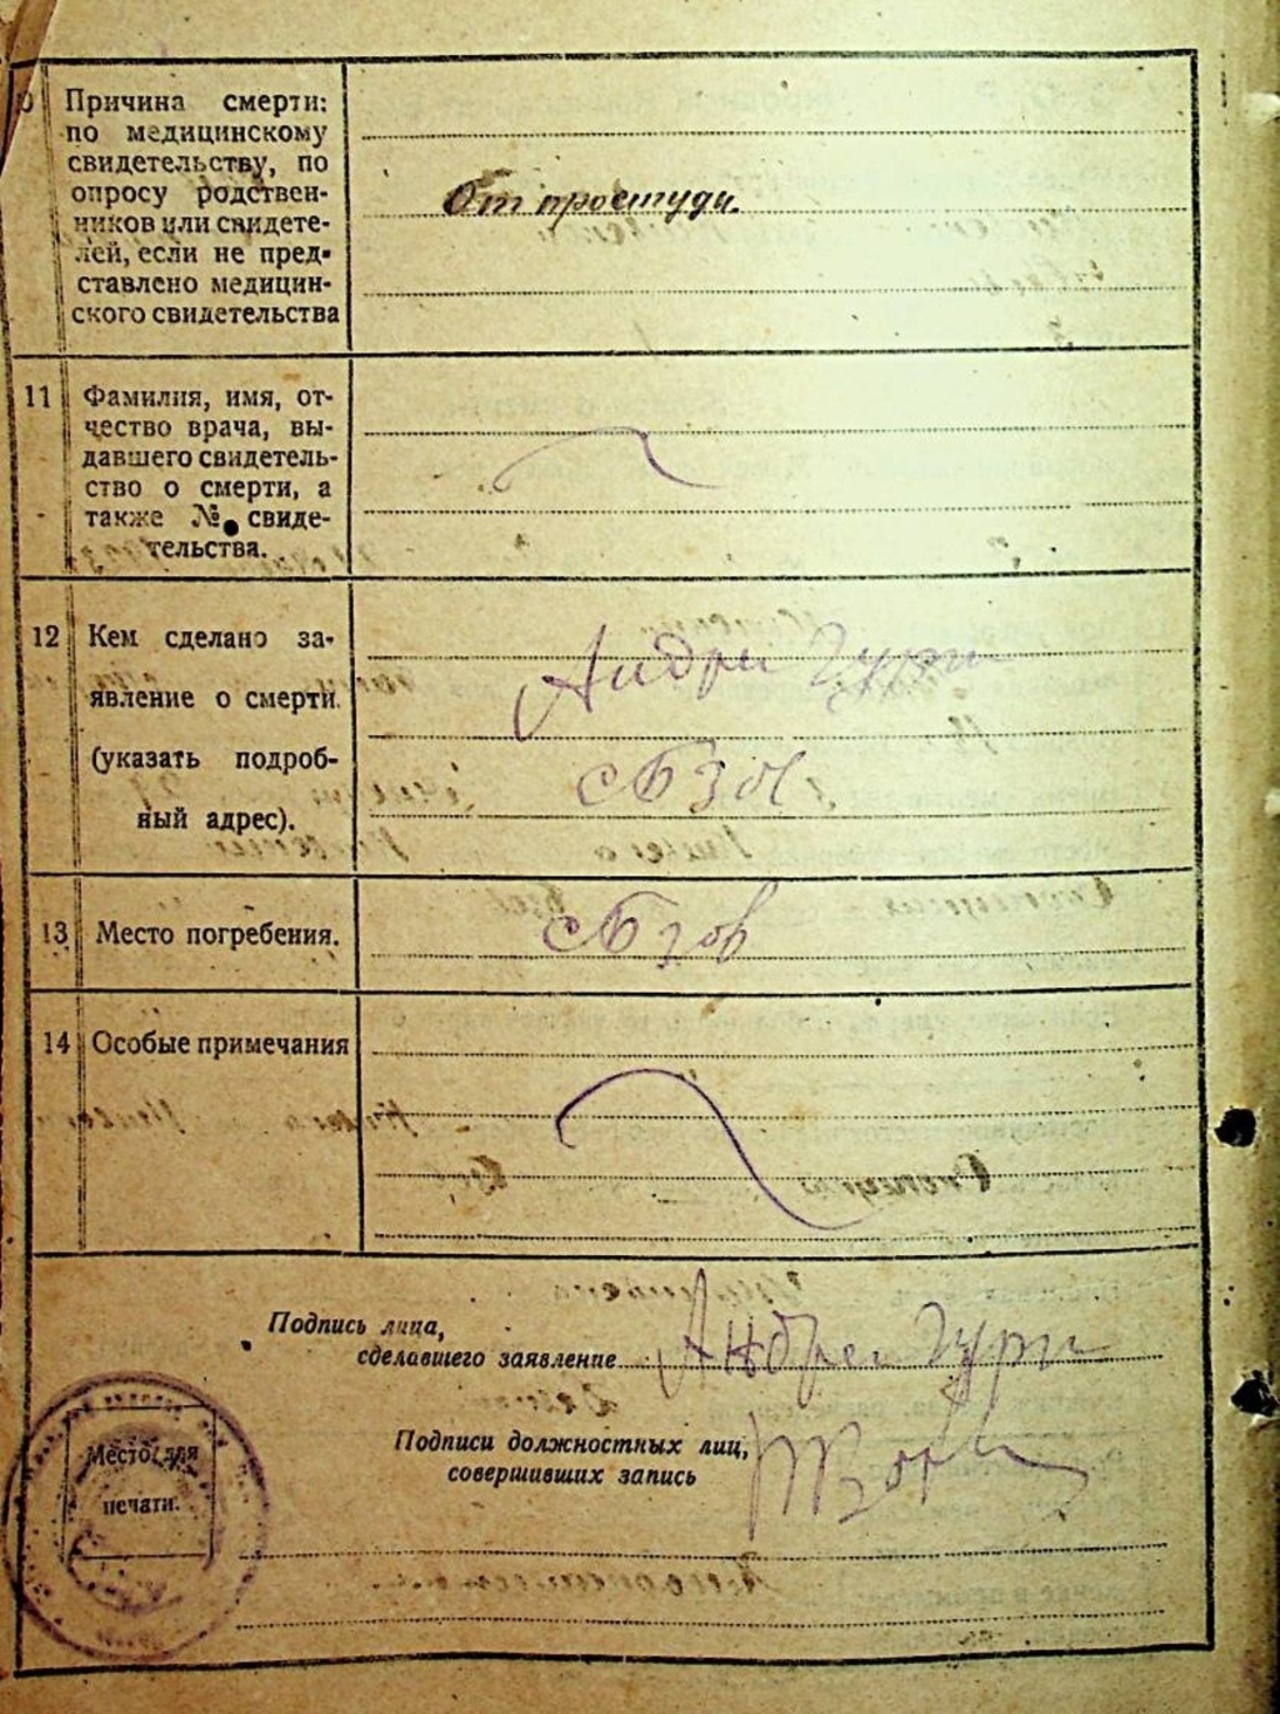 Причина смерти:
по медицинскому
свидетельству, по
опросу родствен-
ников или свидете-
лей, если не пред-
ставлено медицин-
ского свидетельства
От простуди.
11 Фамилия, имя, от-
чество врача, вы-
давшего свидетель-
ство о смерти, а
также № свиде-
тельства.
12 Кем сделано за-
явление о смерти.
(указать подроб-
ный адрес).
Андреи Гури
с Бзов
13 Место погребения.
с Бзов
14 Особые примечания
Подпись лица,
сделавшего заявление Андреи Гури
Подписи должностных лиц,
совершивших запись
Место для
печати.